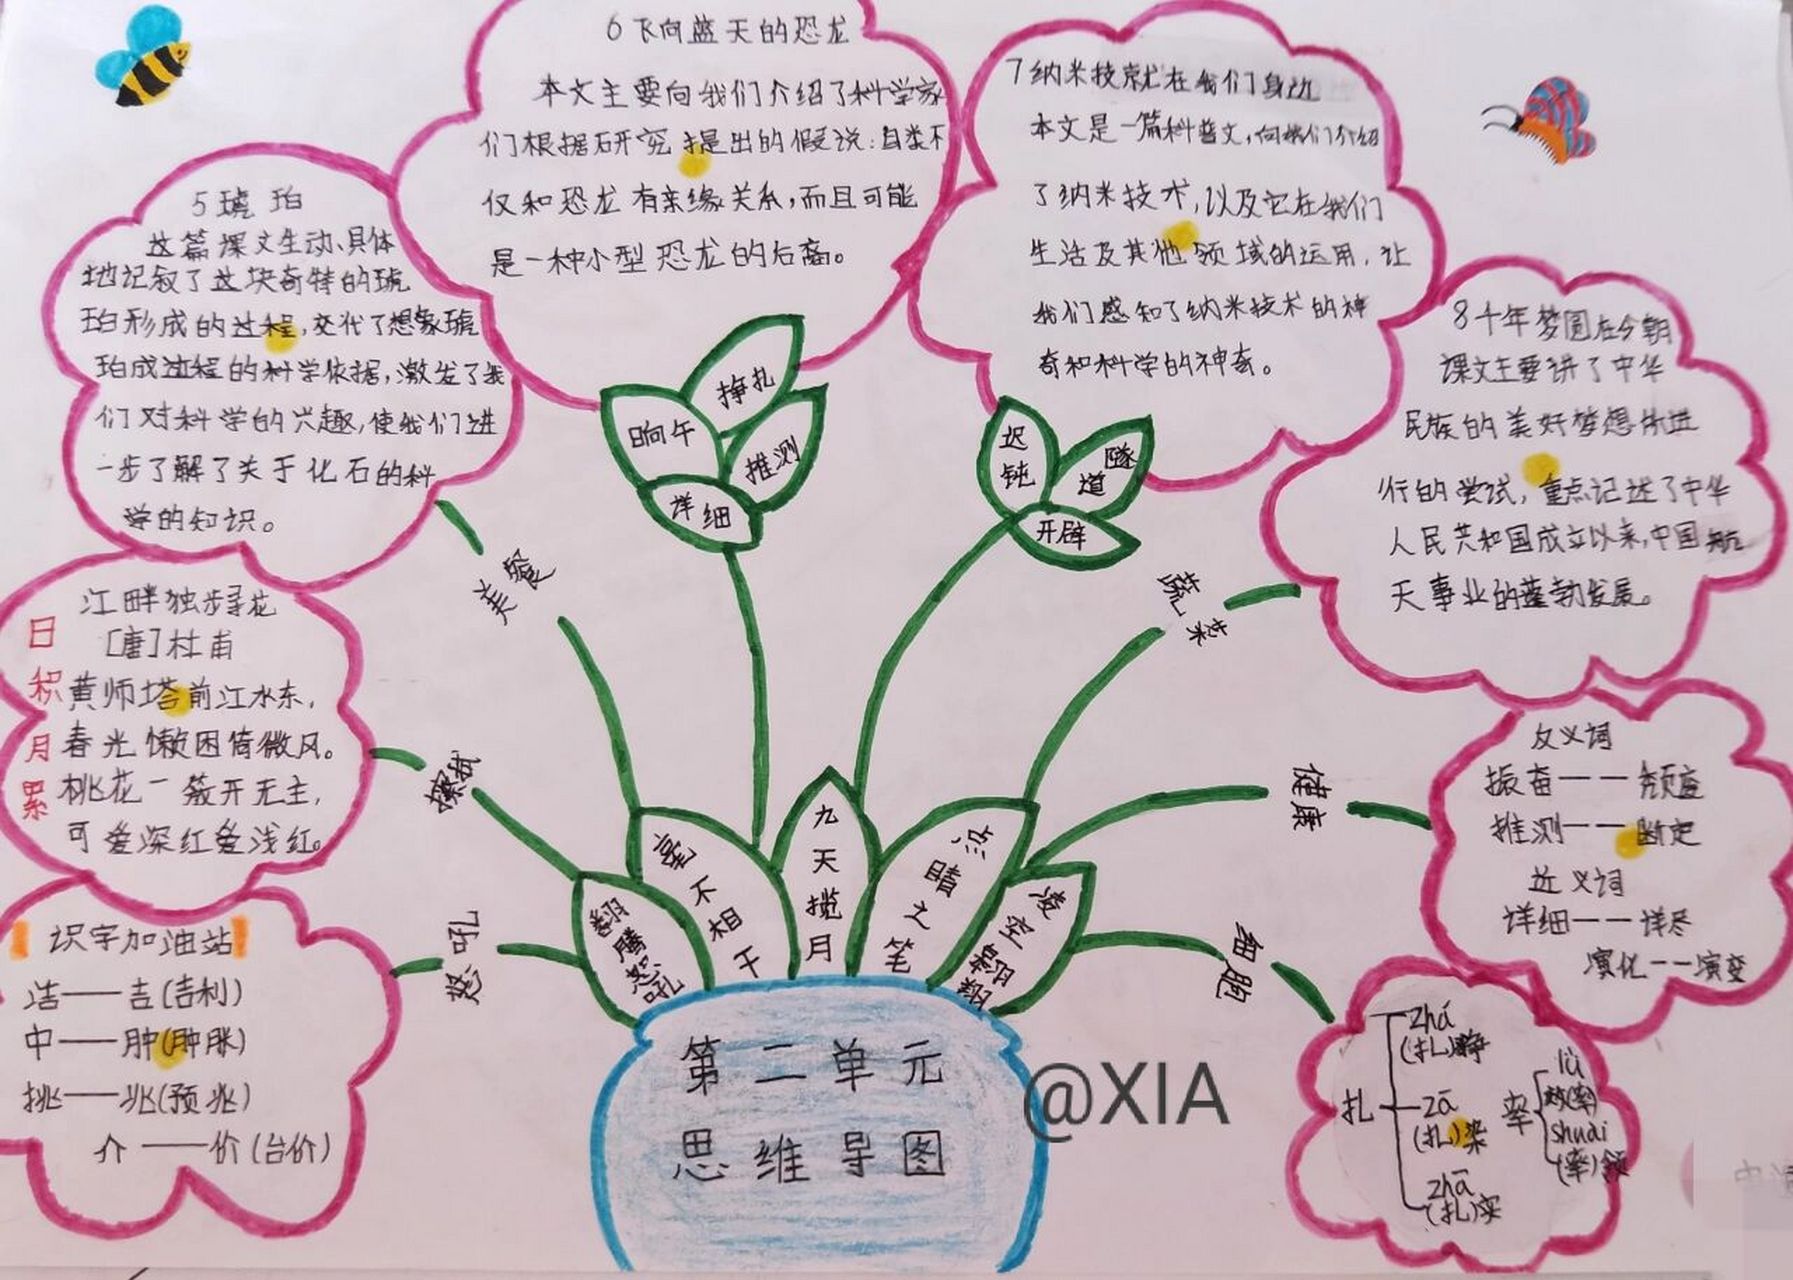 6 飞向蓝天的恐龙
本文主要向我们介绍了科学家
们根据研究提出的假说:鸟类不
仅和恐龙有亲缘关系,而且可能
是一种小型恐龙的后裔。
7 纳米技术就在我们身边
本文是一篇科普文,向我们介绍
了纳米技术,以及它在我们
生活及其他领域的运用,让
我们感知了纳米技术的神
奇和科学的神奇。
5 琥珀
这篇课文生动、具体
地记叙了这块奇特的琥
珀形成的过程,交代了想象琥
珀成过程的科学依据,激发了我
们对科学的兴趣,使我们进
一步了解了关于化石的科
学的知识。
8 千年梦圆在今朝
课文主要讲了中华
民族的美好梦想所进
行的尝试,重点记述了中华
人民共和国成立以来,中国航
天事业的蓬勃发展。
挣扎
晌午
推测
详细
迟钝
隧道
开辟
美餐
蔬菜
健康
细胞
擦拭
怒吼
日积月累
江畔独步寻花
[唐]杜甫
黄师塔前江水东,
春光懒困倚微风。
桃花一簇开无主,
可爱深红爱浅红。
反义词
振奋——颓废
推测——断定
近义词
详细——详尽
演化——演变
识字加油站
洁——吉(吉利)
中——肿(肿胀)
挑——兆(预兆)
介——价(台价)
翻腾怒吼
毫不相干
九天揽月
点睛之笔
凌空翱翔
扎
zhá
(扎)挣
zā
(扎)染
zhā
(扎)实
率
lǜ
效(率)
shuài
(率)领
第二单元
思维导图
@XIA